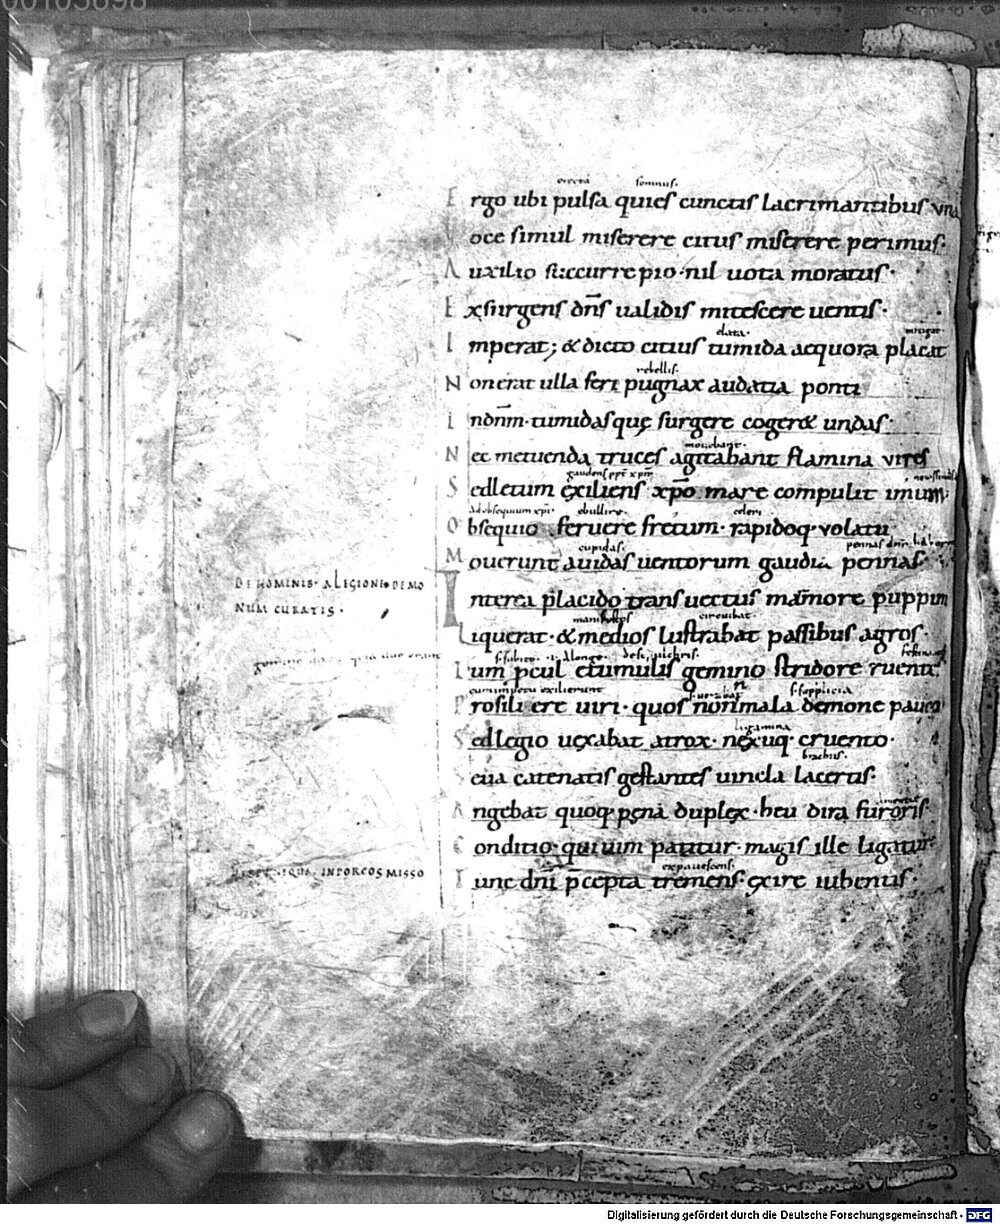 00105698
erecta somnus.
Ergo ubi pulsa quies cunctis lacrimantibus una
Voce simul miserere citus miserere perimus.
Auxilio succurre pio· nil uota moratus·
Exsurgens dn̄s ualidis mitescere uentis·
elata. mitigat
Imperat; & dicto citius tumida aequora placat
rebellis.
Non erat ulla feri pugnax audatia ponti
In dnm̄· tumidasquę surgere coger& undas·
mouebant.
Nec metuenda truces agitabant flamina vires
gaudens
Sed lętum ęxiliens xp̄o mare compulit imum
Ad obsequium xpi· ebullire. celeri
Obsequio feruere fretum· rapidoq· volatu
cupidas.
Mouerunt auidas uentorum gaudia pennas·
DE HOMINIB· A LEGIONE DEMO
NUM CURATIS·
Interea placido transuectus marmore puppim
circuibat·
Liquerat· & medios lustrabat passibus agros·
Tum p̄cul e tumulis gemino stridore ruentes
cum impetu exilierunt s· supplicia
Prosiliere uiri· quos non mala demone pauca
ligamina
Sed legio uexabat atrox· nexuq· cruento·
brachiis.
Seua catenatis gestantes uincla lacertis·
Angebat quoq· pęna duplex· heu dira furoris
Conditio· qui uim patitur· magis ille ligatur·
IN PORCOS MISSO
expauescens.
Tunc dn̄i p̄cepta tremens· exire iubentis·
Digitalisierung gefördert durch die Deutsche Forschungsgemeinschaft - DFG